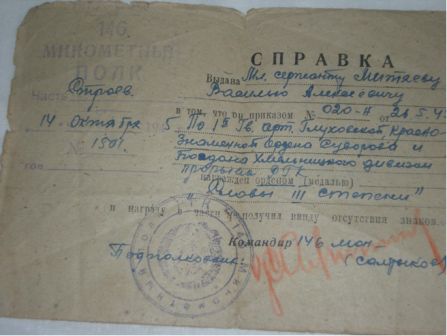 146
МИНОМЕТНЫЙ
ПОЛК
Часть Строев.
14 октября 1945
№ 1501
СПРАВКА
Выдана Мл. сержанту Митяеву
Василию Алексеевичу
в том, что он приказом № 020-н от 21.5.45
По 1й Гв. арт. Глуховской Красно-
Знаменной Ордена Суворова и
Богдана Хмельницкого дивизии
Прорыва РГК
награжден орденом (медалью)
"Славы III степени"
и награду в части не получил ввиду отсутствия знаков.
Командир 146 мин.
Подполковник: (Салтыков)